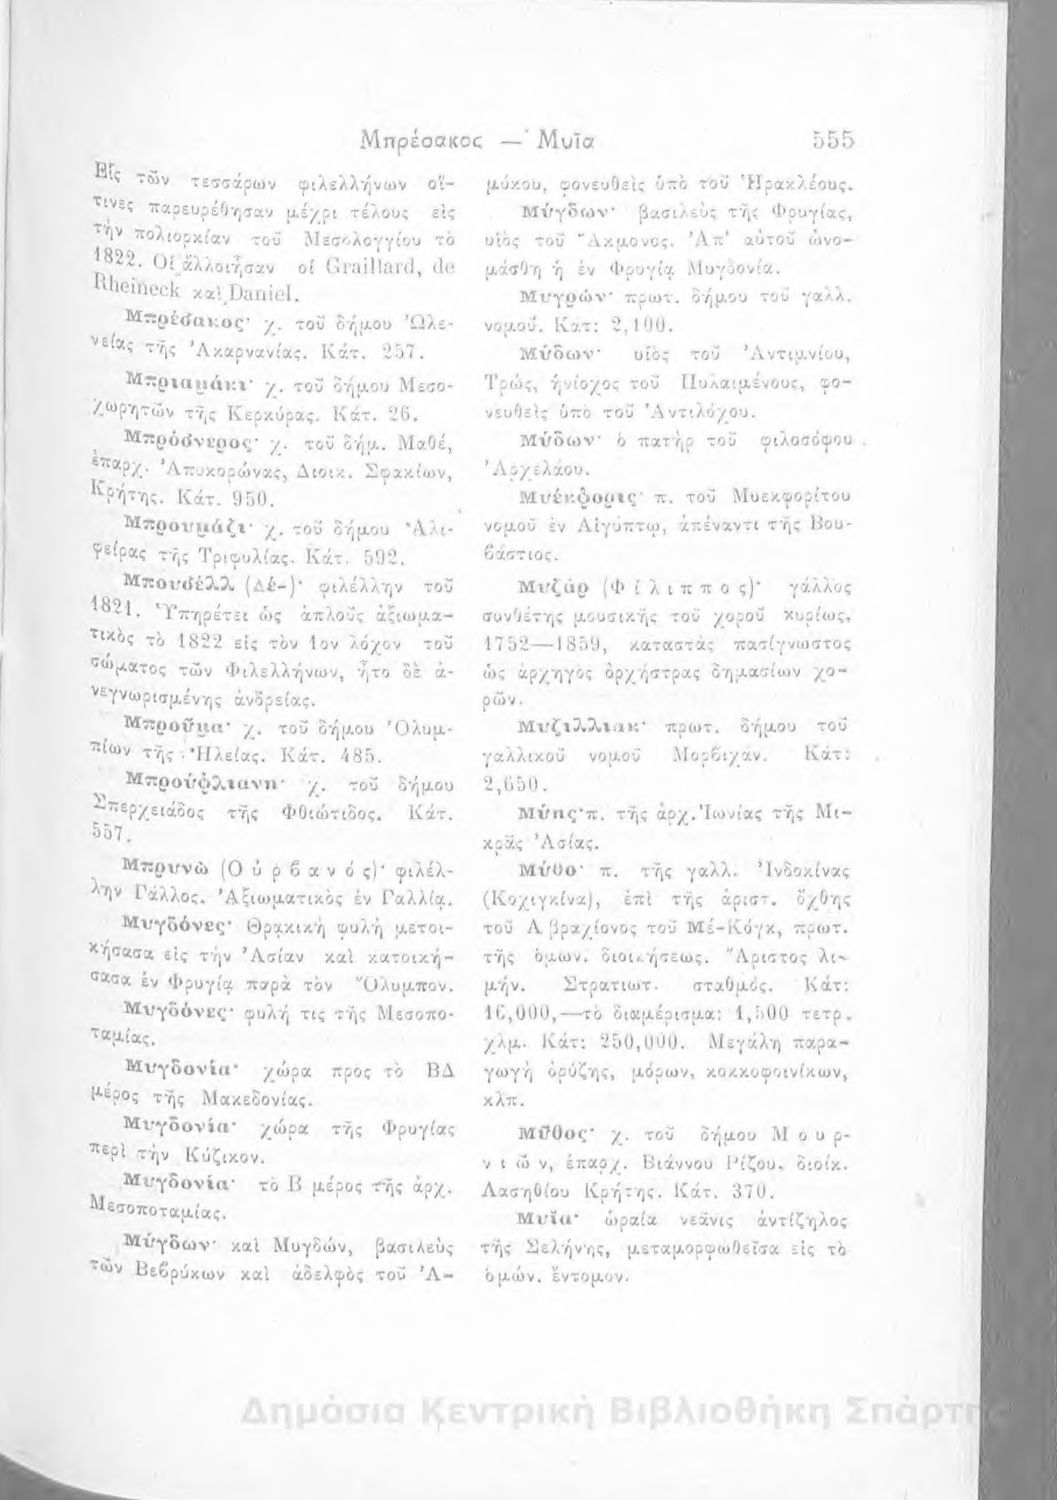 Μπρέσακος — Μυῖα 555
Εἷς τῶν τεσσάρων φιλελλήνων οἵ-
τινες παρευρέθησαν μέχρι τέλους εἰς
τὴν πολιορκίαν τοῦ Μεσολογγίου τὸ
1822. Οἱ ἄλλοι ἦσαν οἱ Graillard, de
Rheineck καὶ Daniel.
Μπρέσακος· χ. τοῦ δήμου Ὠλε-
νείας τῆς Ἀκαρνανίας. Κάτ. 257.
Μπριαμάκι· χ. τοῦ δήμου Μεσο-
χωρητῶν τῆς Κερκύρας. Κάτ. 26.
Μπρόσνερος· χ. τοῦ δήμ. Μαθέ,
ἐπαρχ. Ἀποκορώνας, Διοικ. Σφακίων,
Κρήτης. Κάτ. 950.
Μπρουμάζι· χ. τοῦ δήμου Ἀλι-
φείρας τῆς Τριφυλίας. Κάτ. 592.
Μπουσέλλ (Δὲ-)· φιλέλλην τοῦ
1821. Ὑπηρέτει ὡς ἁπλοῦς ἀξιωμα-
τικὸς τὸ 1822 εἰς τὸν 1ον λόχον τοῦ
σώματος τῶν Φιλελλήνων, ἦτο δὲ ἀ-
νεγνωρισμένης ἀνδρείας.
Μπροῦμα· χ. τοῦ δήμου Ὀλυμ-
πίων τῆς Ἠλείας. Κάτ. 485.
Μπρούφλιανη· χ. τοῦ δήμου
Σπερχειάδος τῆς Φθιώτιδος. Κάτ.
557.
Μπρυνὼ (Οὐρβανός)· φιλέλ-
λην Γάλλος. Ἀξιωματικὸς ἐν Γαλλίᾳ.
Μυγδόνες· Θρακικὴ φυλὴ μετοι-
κήσασα εἰς τὴν Ἀσίαν καὶ κατοική-
σασα ἐν Φρυγίᾳ παρὰ τὸν Ὄλυμπον.
Μυγδόνες· φυλή τις τῆς Μεσοπο-
ταμίας.
Μυγδονία· χώρα πρὸς τὸ ΒΔ
μέρος τῆς Μακεδονίας.
Μυγδονία· χώρα τῆς Φρυγίας
περὶ τὴν Κύζικον.
Μυγδονία· τὸ Β μέρος τῆς ἀρχ.
Μεσοποταμίας.
Μύγδων· καὶ Μυγδών, βασιλεὺς
τῶν Βεβρύκων καὶ ἀδελφὸς τοῦ Ἀ-
μύκου, φονευθεὶς ὑπὸ τοῦ Ἡρακλέους.
Μύγδων· βασιλεὺς τῆς Φρυγίας,
υἱὸς τοῦ Ἄκμονος. Ἀπ' αὐτοῦ ὠνο-
μάσθη ἡ ἐν Φρυγίᾳ Μυγδονία.
Μυγρών· πρωτ. δήμου τοῦ γαλλ.
νομοῦ. Κάτ: 2,100.
Μύδων· υἱὸς τοῦ Ἀντιμνίου,
Τρώς, ἡνίοχος τοῦ Πυλαιμένους, φο-
νευθεὶς ὑπὸ τοῦ Ἀντιλόχου.
Μύδων· ὁ πατὴρ τοῦ φιλοσόφου
Ἀρχελάου.
Μυέκφορις· π. τοῦ Μυεκφορίτου
νομοῦ ἐν Αἰγύπτῳ, ἀπέναντι τῆς Βου-
βάστιος.
Μυζὰρ (Φίλιππος)· γάλλος
συνθέτης μουσικῆς τοῦ χοροῦ κυρίως,
1752—1859, καταστὰς πασίγνωστος
ὡς ἀρχηγὸς ὀρχήστρας δημοσίων χο-
ρῶν.
Μυζιλλιακ· πρωτ. δήμου τοῦ
γαλλικοῦ νομοῦ Μορβιχάν. Κάτ:
2,650.
Μύης· π. τῆς ἀρχ. Ἰωνίας τῆς Μι-
κρᾶς Ἀσίας.
Μύθο· π. τῆς γαλλ. Ἰνδοκίνας
(Κοχιγκίνα), ἐπὶ τῆς ἀριστ. ὄχθης
τοῦ Α βραχίονος τοῦ Μέ-Κόγκ, πρωτ.
τῆς ὁμων. διοικήσεως. Ἄριστος λι-
μήν. Στρατιωτ. σταθμός. Κάτ:
16,000,—τὸ διαμέρισμα: 1,500 τετρ.
χλμ. Κάτ: 250,000. Μεγάλη παρα-
γωγὴ ὀρύζης, μόρων, κοκκοφοινίκων,
κλπ.
Μῦθος· χ. τοῦ δήμου Μουρ-
νιῶν, ἐπαρχ. Βιάννου Ρίζου, διοίκ.
Λασηθίου Κρήτης. Κάτ. 370.
Μυῖα· ὡραία νεᾶνις ἀντίζηλος
τῆς Σελήνης, μεταμορφωθεῖσα εἰς τὸ
ὁμών. ἔντομον.
Δημόσια Κεντρική Βιβλιοθήκη Σπάρτης